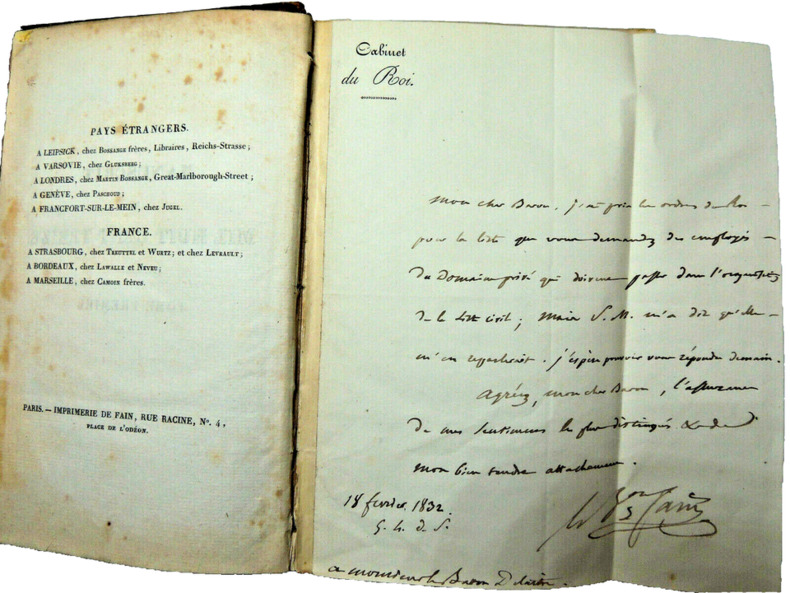 PAYS ÉTRANGERS.
A LEIPSICK, chez Bossange frères, Libraires, Reichs-Strasse;
A VARSOVIE, chez Gluksberg;
A LONDRES, chez Martin Bossange, Great-Marlborough-Street;
A GENÈVE, chez Paschoud;
A FRANCFORT-SUR-LE-MEIN, chez Jugel.
FRANCE.
A STRASBOURG, chez Treuttel et Wurtz; et chez Levrault;
A BORDEAUX, chez Lawalle et Neveu;
A MARSEILLE, chez Camoin frères.
PARIS. — IMPRIMERIE DE FAIN, RUE RACINE, No. 4,
PLACE DE L'ODÉON.
Cabinet
du Roi.
Mon cher Baron, j'ai pris les ordres du Roi
pour la liste que vous demandez des employés
du Domaine privé qui doivent passer dans l'organisation
de la liste civile; mais S. M. m'a dit qu'elle
m'en reparlerait. j'espère pouvoir vous répondre demain.
Agréez, mon cher Baron, l'assurance
de mes sentimens les plus distingués &
mon bien tendre attachement.
18 février 1832.
Le Bon Fain
a monsieur le Baron